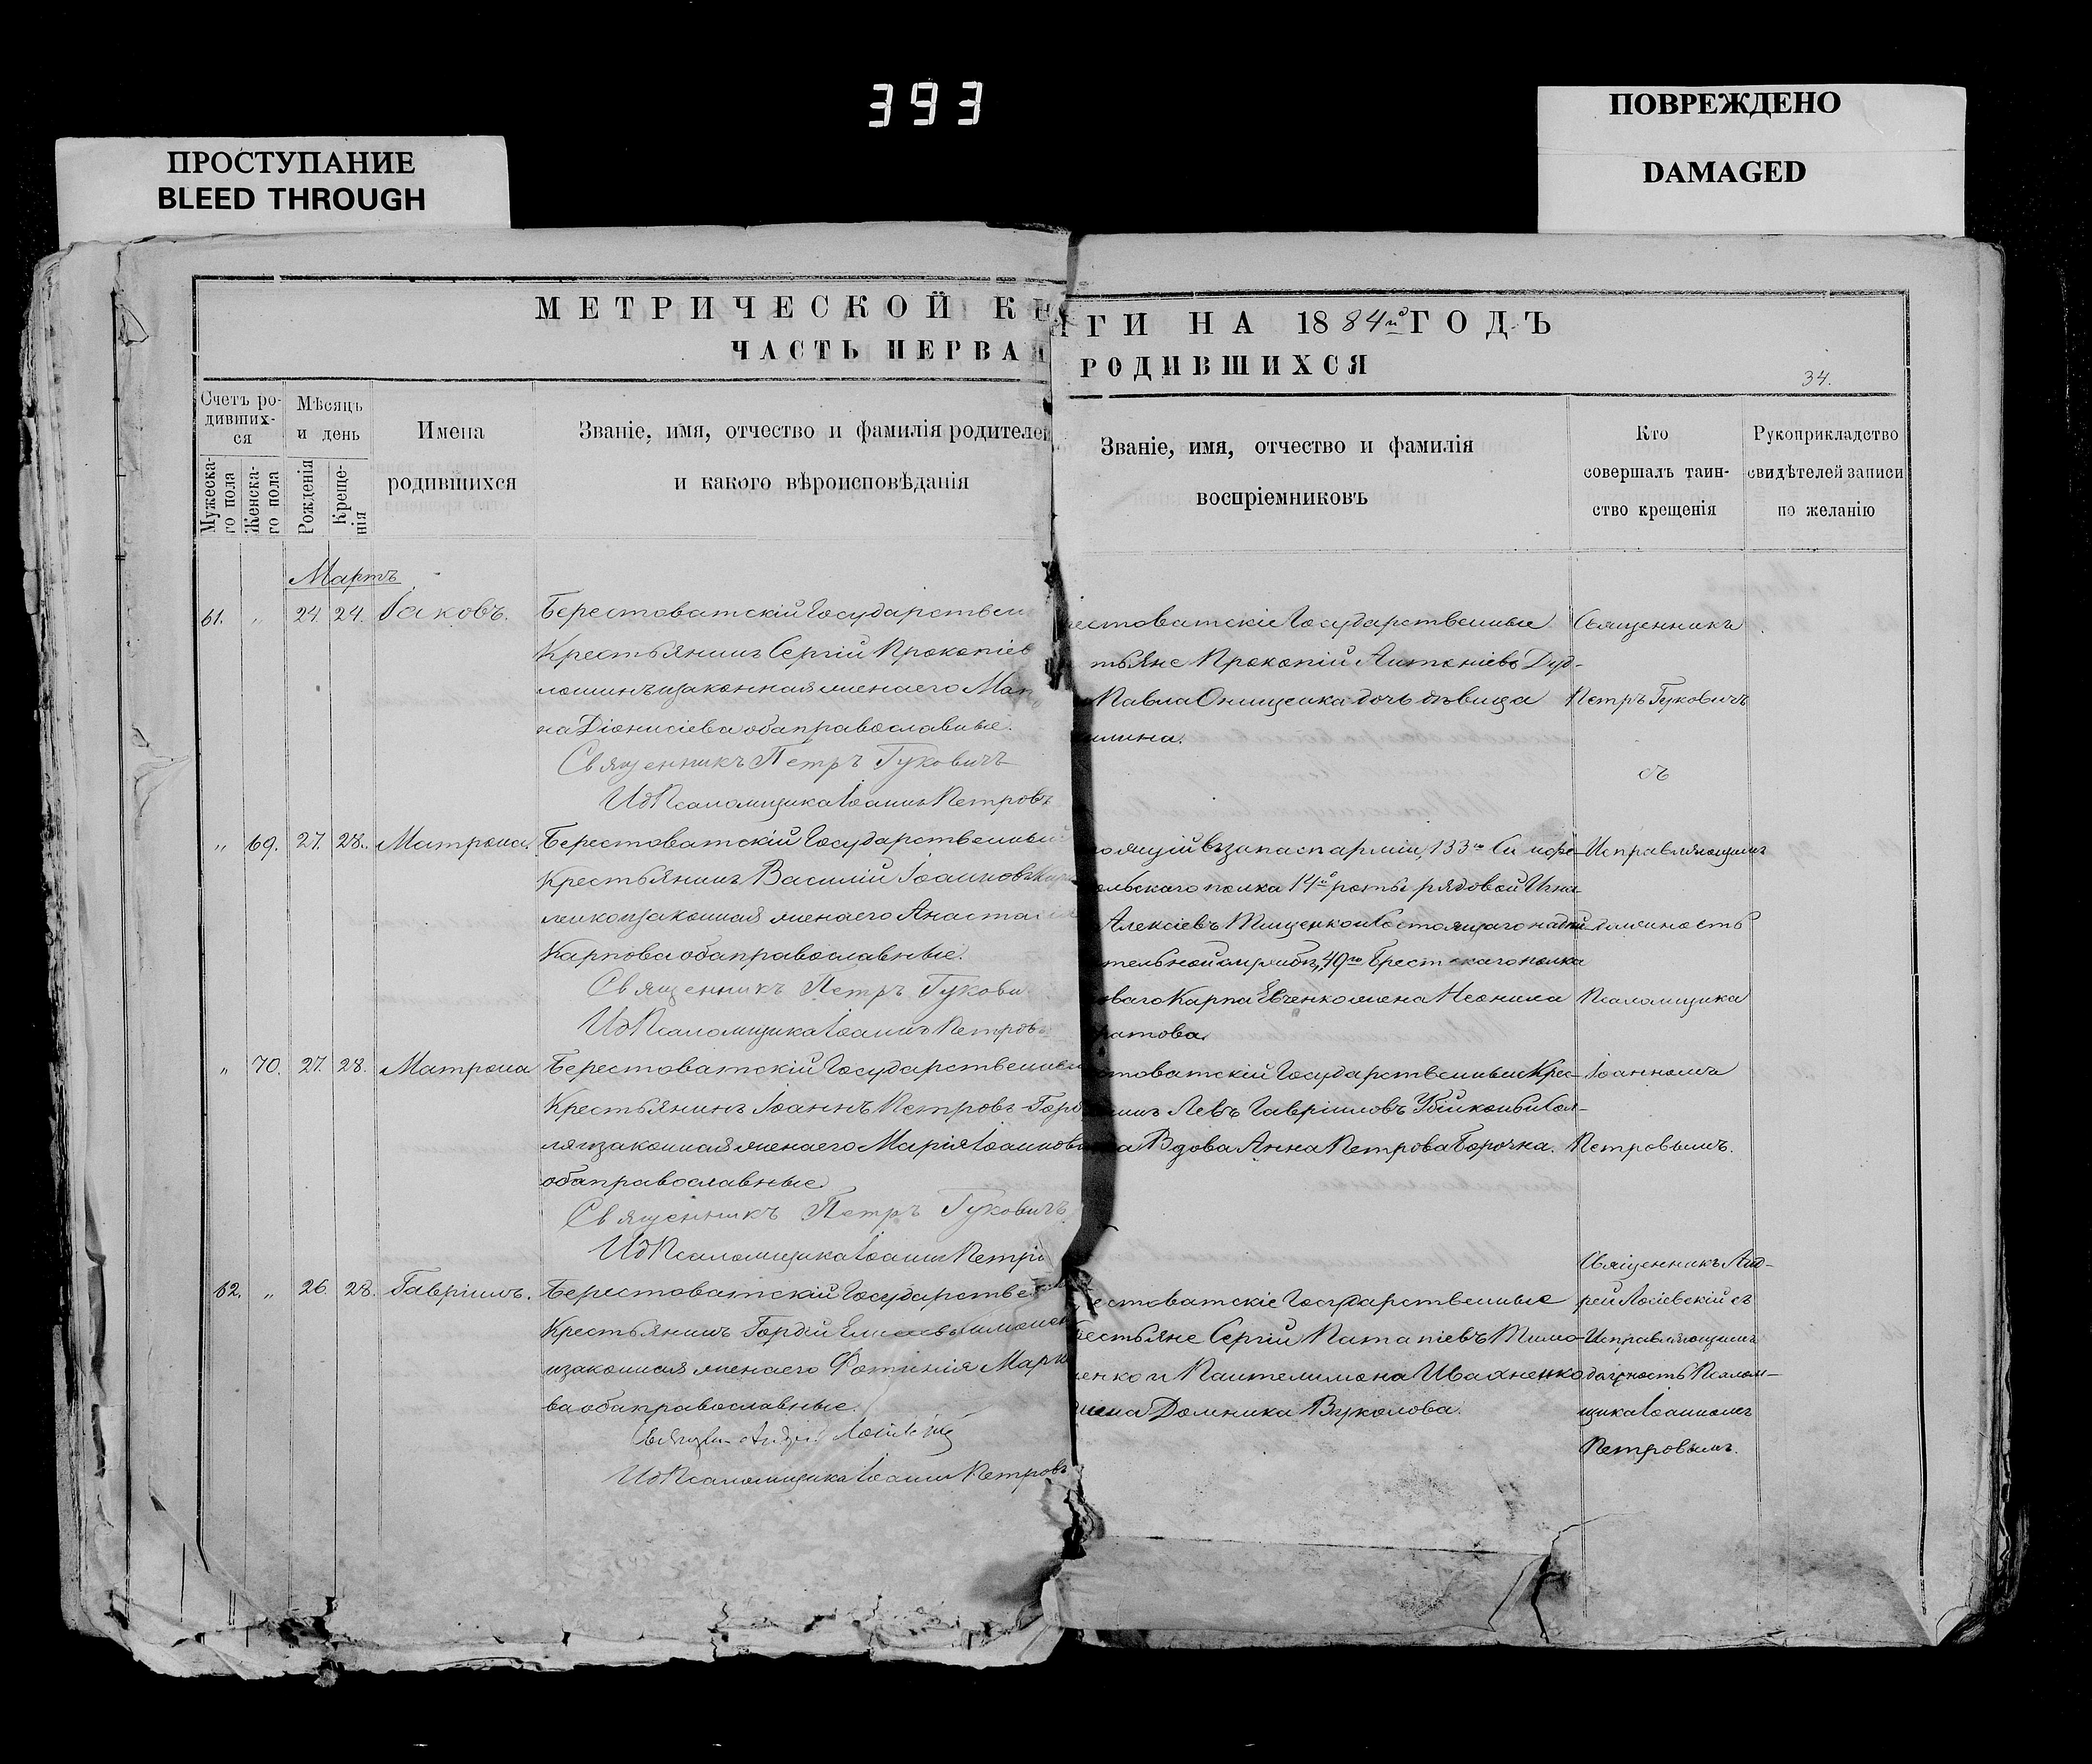 393
ПРОСТУПАНИЕ
BLEED THROUGH
ПОВРЕЖДЕНО
DAMAGED
МЕТРИЧЕСКОЙ КНИГИ НА 1884й ГОДЪ
ЧАСТЬ ПЕРВАЯ РОДИВШИХСЯ
34.
Счетъ ро-
дивших-
ся
Мужеска-
го пола
Женска-
го пола
Мѣсяцъ
и день
Рожденія
Креще-
нія
Имена
родившихся
Званіе, имя, отчество и фамилія родителей
и какого вѣроисповѣданія
Званіе, имя, отчество и фамилія
воспріемниковъ
Кто
совершалъ таин-
ство крещенія
Рукоприкладство
свидѣтелей записи
по желанію
Мартъ
61. „ 24. 24. Іаковъ.
Берестоватскій Государствен
Крестьянинъ Сергій Прокопіев
изаконная женаего
на Діонисіева обаправославные.
Священникъ Петръ Гуковичъ
ИдПсаломщика Іоаннъ Петровъ
естоватскіе Государственные
тьяне Прокопій Антоніевъ Дуд-
Павла Онищенка дочь дѣвица
Священникъ
Петръ Гуковичъ
съ
„ 69. 27. 28. Матрона.
Берестоватскій Государственный
Крестьянинъ Василій Іоанновъ
ленкоизаконная женаего Анастасія
Карповаобаправославные.
Священникъ Петръ Гукови
ИдПсаломщика Іоаннъ Петровъ
оящій взапасѣ арміи, 133го Симфе-
ольскаго полка 14й роты рядовой Игна
Алексіевъ Тищенко иСостоящаго
49го Брестскаго полка
оваго Карпа Евченко жена Неонила
ратова.
Исправляющимъ
должность
Псаломщика
„ 70. 27. 28. Матрона
Берестоватскій Государственный
Крестьянинъ Іоаннъ Петровъ
ляизаконная женаего Марія Іоаннова
обаправославные.
Священникъ Петръ Гуковичъ
ИдПсаломщика Іоаннъ Петро
стоватскій Государственный Крес-
нинъ Левъ Гавріиловъ
Вдова Анна Петрова Борочка.
Іоанномъ
Петровымъ.
62. „ 26. 28. Гавріилъ.
Берестоватскій Государствен
Крестьянинъ Гордій
изаконная женаего Фотинія Марко
ва обаправославные.
ИдПсаломщика Іоаннъ Петровъ
естоватскіе Государственные
рестьяне Сергій Патапіевъ Тимо-
ченко и Пантелимона Ивахненко
жена Домника Вуколова.
Священникъ Анд-
рей Лосіевскій съ
Исправляющимъ
должность Псалом-
щика Іоанномъ
Петровымъ.